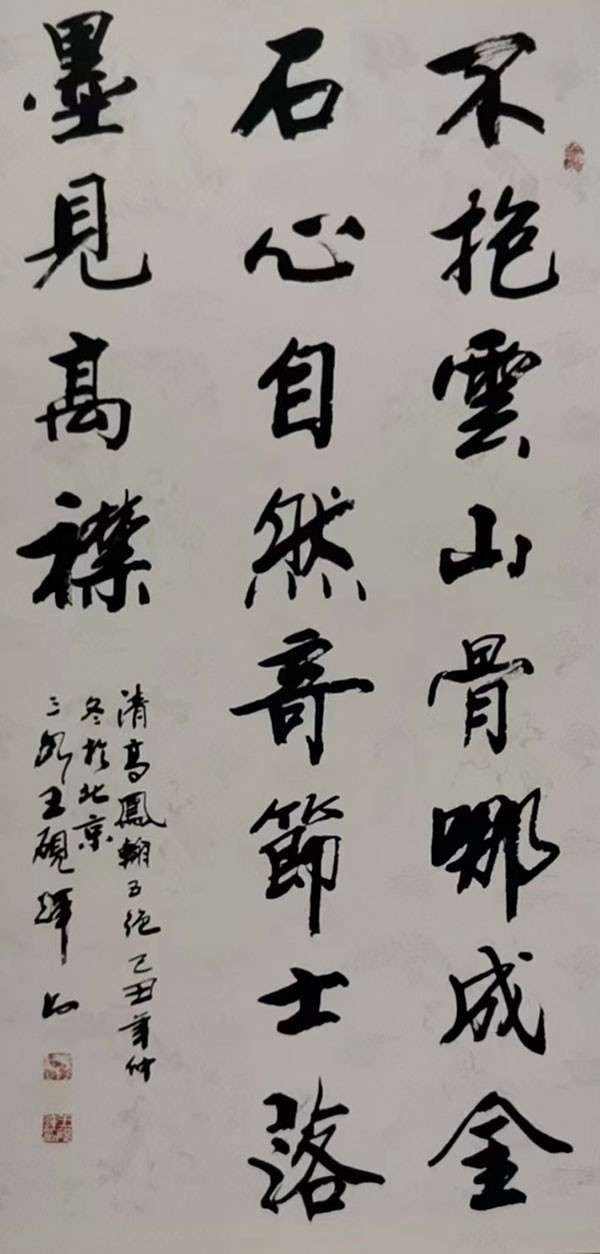 不抱雲山骨哪成金
石心自然竒節士落
墨見高襟
清高鳳翰五絕己丑年仲
冬於北京
王硯輝